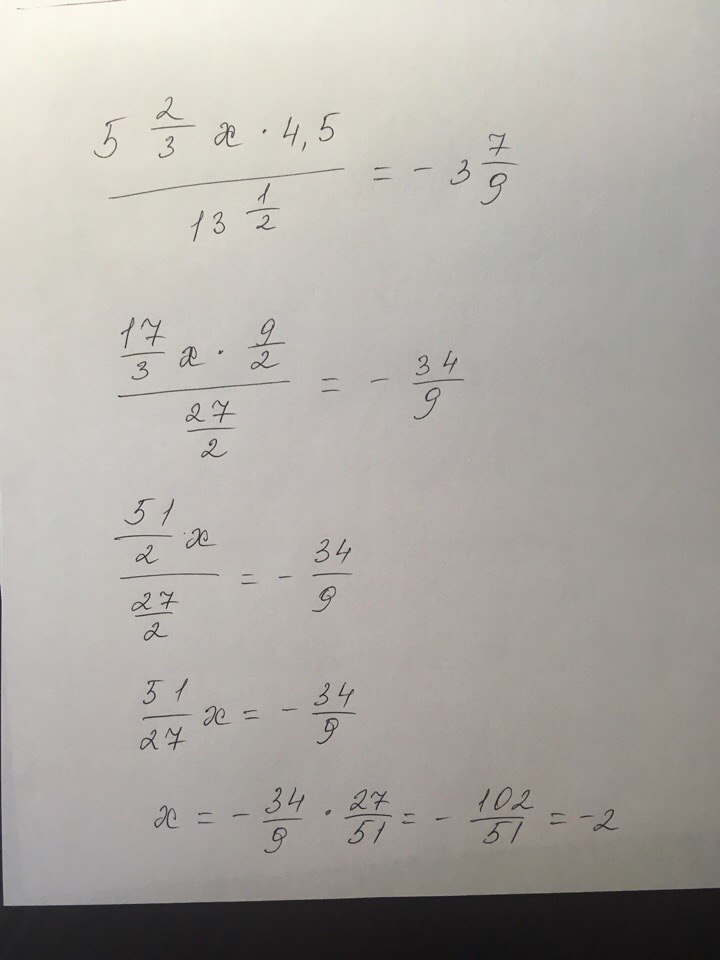 5 2/3 x · 4,5 / 13 1/2 = - 3 7/9
17/3 x · 9/2 / 27/2 = - 34/9
51/2 x / 27/2 = - 34/9
51/27 x = - 34/9
x = - 34/9 · 27/51 = - 102/51 = -2